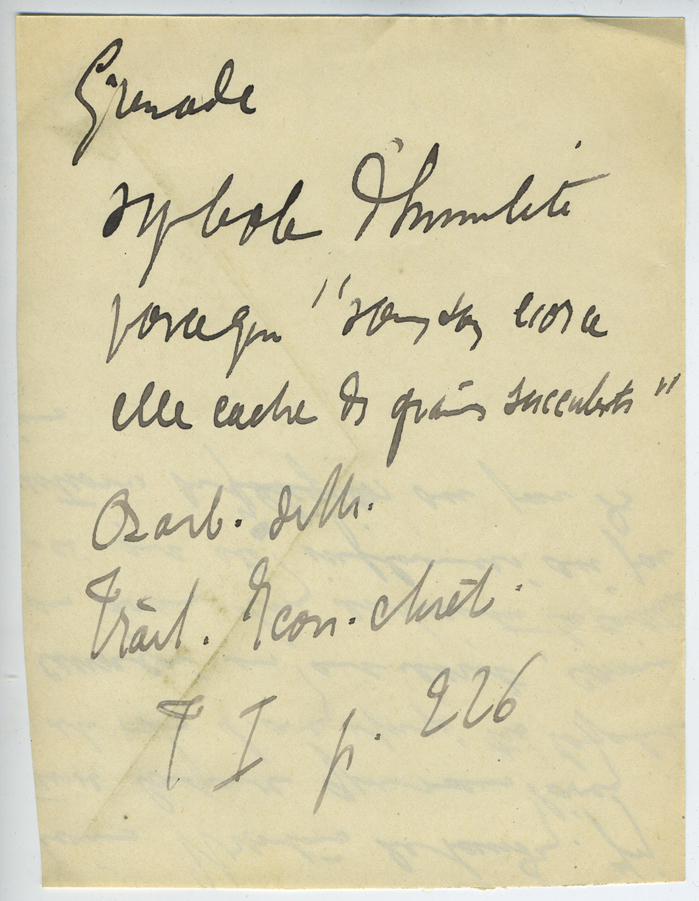 Grenade
symbole d'humilité
parce que "sous son écorce
elle cache des grains succulents"
Barb. de M.
Trait. Icon. chrét.
T I p. 226